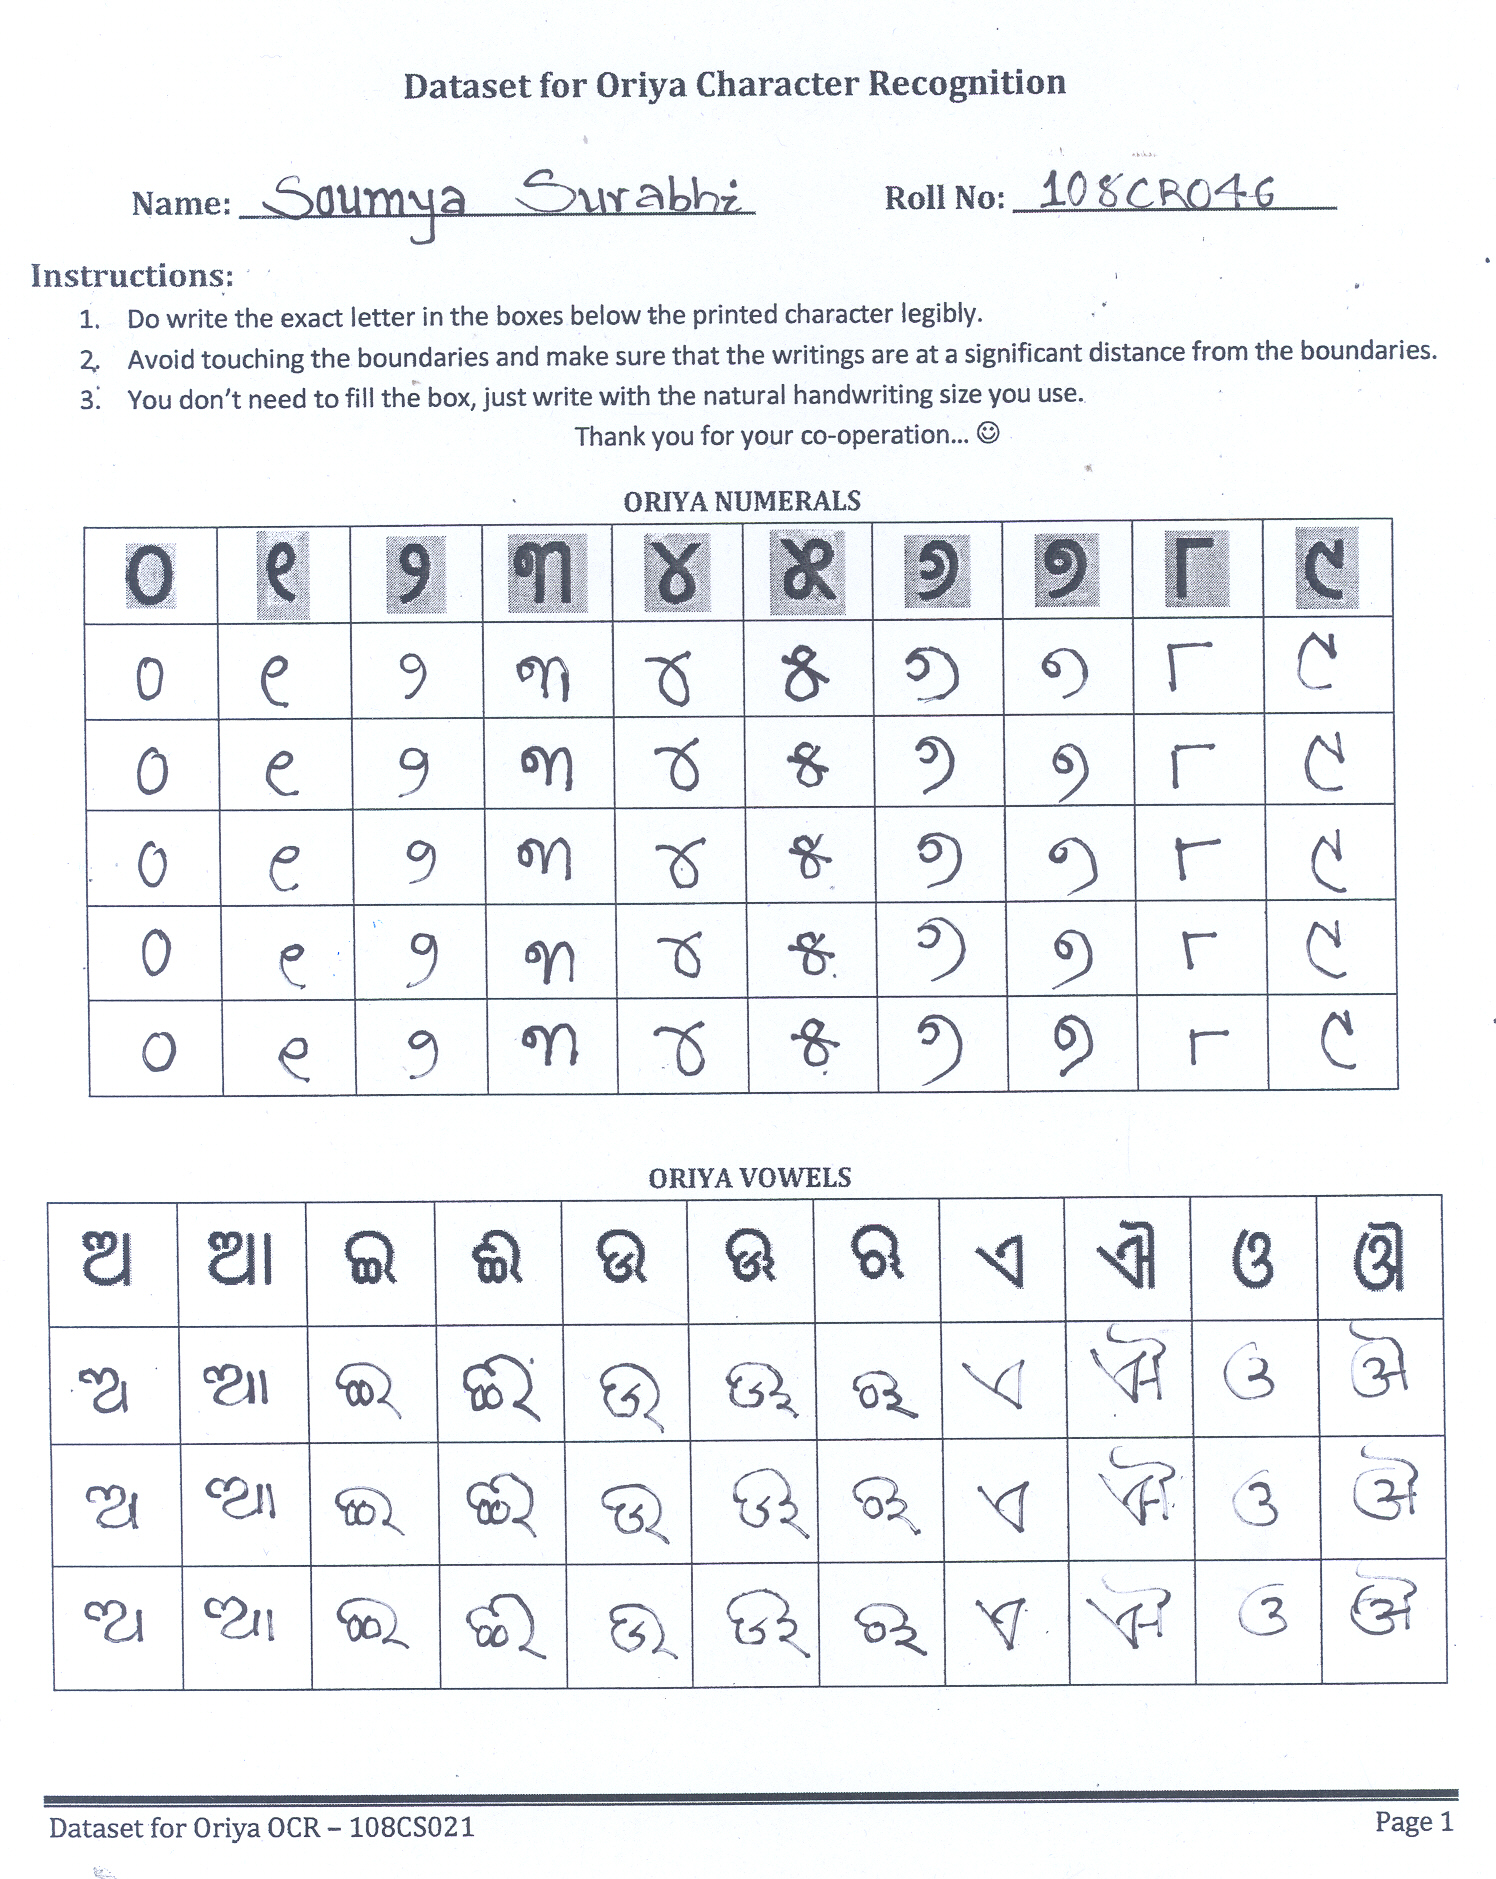 Dataset for Oriya Character Recognition
Name: Soumya Surabhi Roll No: 108CR046
Instructions:
1. Do write the exact letter in the boxes below the printed character legibly.
2. Avoid touching the boundaries and make sure that the writings are at a significant distance from the boundaries.
3. You don't need to fill the box, just write with the natural handwriting size you use.
Thank you for your co-operation... ☺
ORIYA NUMERALS
୦ ୧ ୨ ୩ ୪ ୫ ୬ ୭ ୮ ୯
୦ ୧ ୨ ୩ ୪ ୫ ୬ ୭ ୮ ୯
୦ ୧ ୨ ୩ ୪ ୫ ୬ ୭ ୮ ୯
୦ ୧ ୨ ୩ ୪ ୫ ୬ ୭ ୮ ୯
୦ ୧ ୨ ୩ ୪ ୫ ୬ ୭ ୮ ୯
୦ ୧ ୨ ୩ ୪ ୫ ୬ ୭ ୮ ୯
ORIYA VOWELS
ଅ ଆ ଇ ଈ ଉ ଊ ଋ ଏ ଐ ଓ ଔ
ଅ ଆ ଇ ଈ ଉ ଊ ଋ ଏ ଐ ଓ ଔ
ଅ ଆ ଇ ଈ ଉ ଊ ଋ ଏ ଐ ଓ ଔ
ଅ ଆ ଇ ଈ ଉ ଊ ଋ ଏ ଐ ଓ ଔ
Dataset for Oriya OCR – 108CS021 Page 1